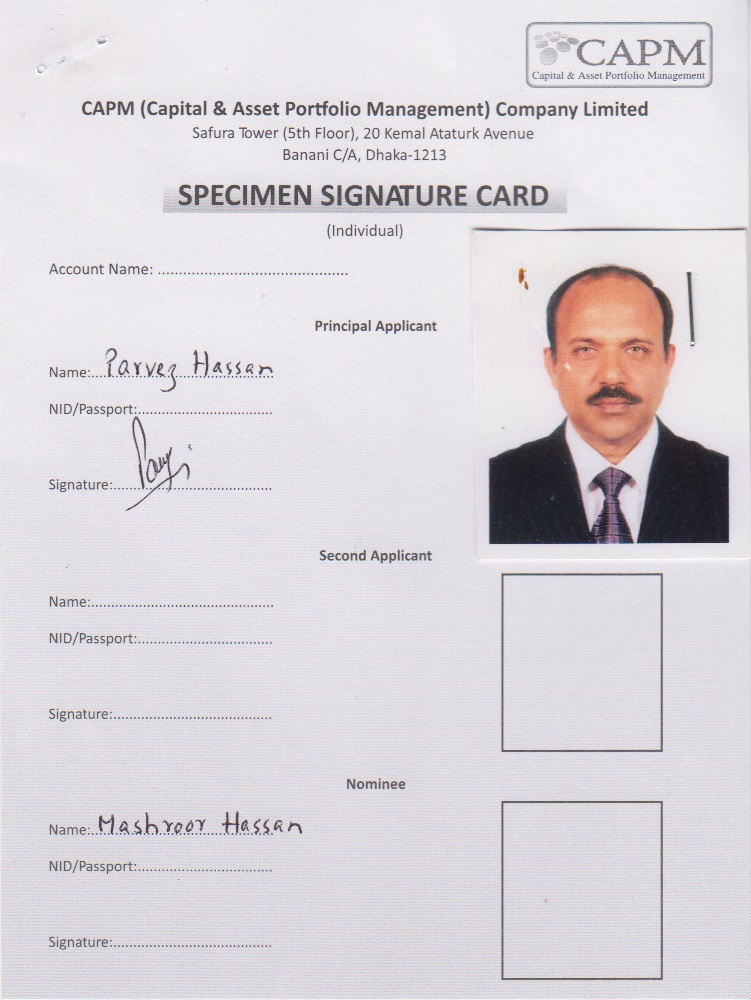 CAPM
Capital & Asset Portfolio Management
CAPM (Capital & Asset Portfolio Management) Company Limited
Safura Tower (5th Floor), 20 Kemal Ataturk Avenue
Banani C/A, Dhaka-1213
SPECIMEN SIGNATURE CARD
(Individual)
Account Name: ............................................
Principal Applicant
Name:.. Parvez Hassan
NID/Passport:................................
Signature:......................................
Second Applicant
Name:...........................................
NID/Passport:................................
Signature:......................................
Nominee
Name:.. Mashroor Hassan
NID/Passport:................................
Signature:......................................